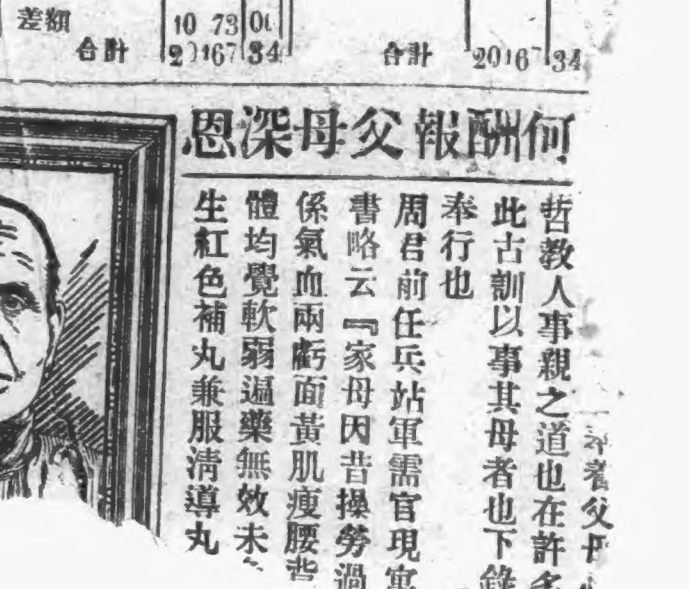 差額
10 73
合計
167 34
合計
20167 34
何酬報父母深恩
者父母
哲教人事親之道也在許多
此古訓以事其母者也下錄
奉行也
周君前任兵站軍需官現寓
書略云『家母因昔操勞過
係氣血兩虧面黃肌瘦腰背
體均覺軟弱逼藥無效未
生紅色補丸兼服淸導丸